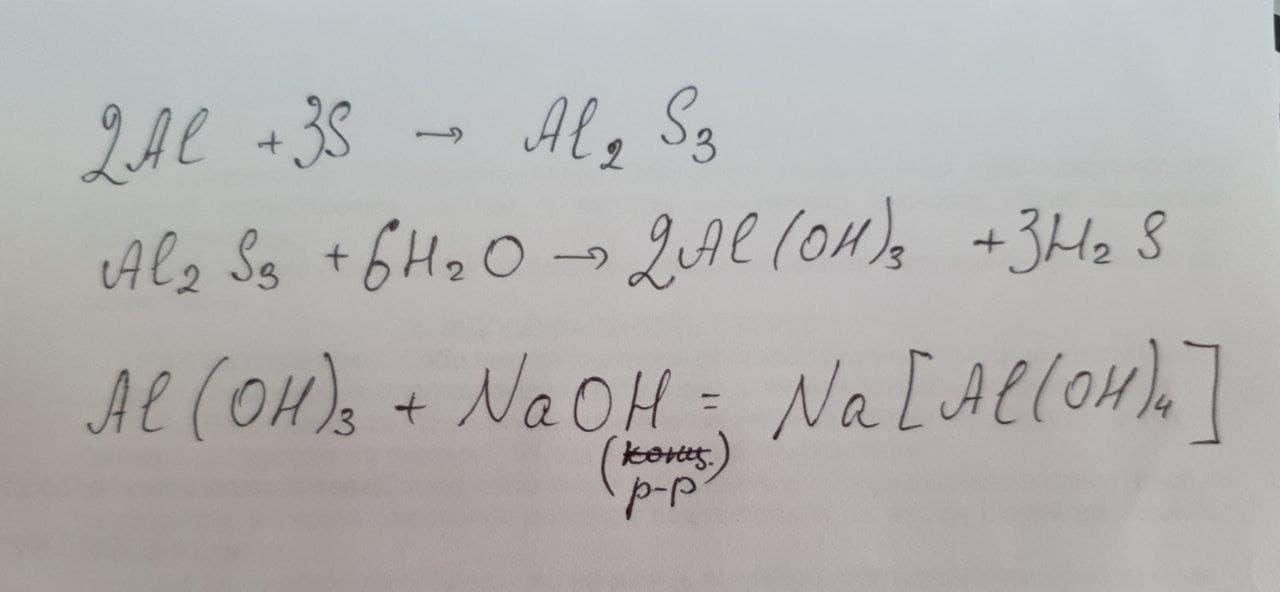 2Al + 3S → Al₂S₃
Al₂S₃ + 6H₂O → 2Al(OH)₃ + 3H₂S
Al(OH)₃ + NaOH = Na[Al(OH)₄]
(конц.)
р-р